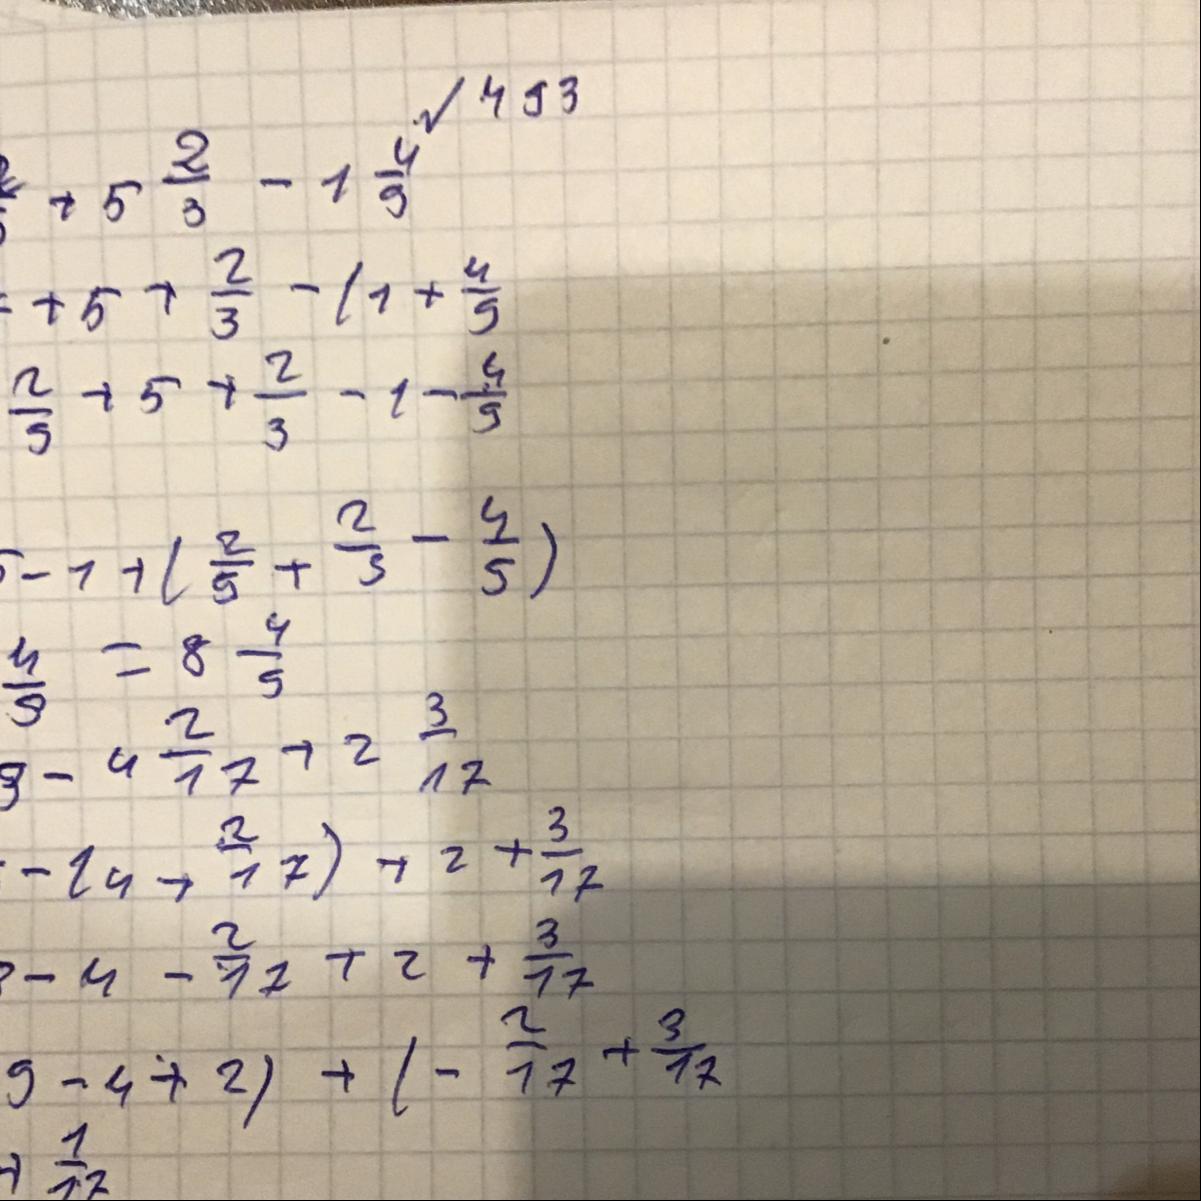 √ 493
+ 5 2/3 - 1 4/9
+ 5 + 2/3 - (1 + 4/9
2/9 + 5 + 2/3 - 1 - 4/9
5 - 1 + (2/9 + 2/3 - 4/9)
4/9 = 8 4/9
9 - 4 2/17 + 2 3/17
- (4 + 2/17) + 2 + 3/17
- 4 - 2/17 + 2 + 3/17
9 - 4 + 2) + (- 2/17 + 3/17
+ 1/17